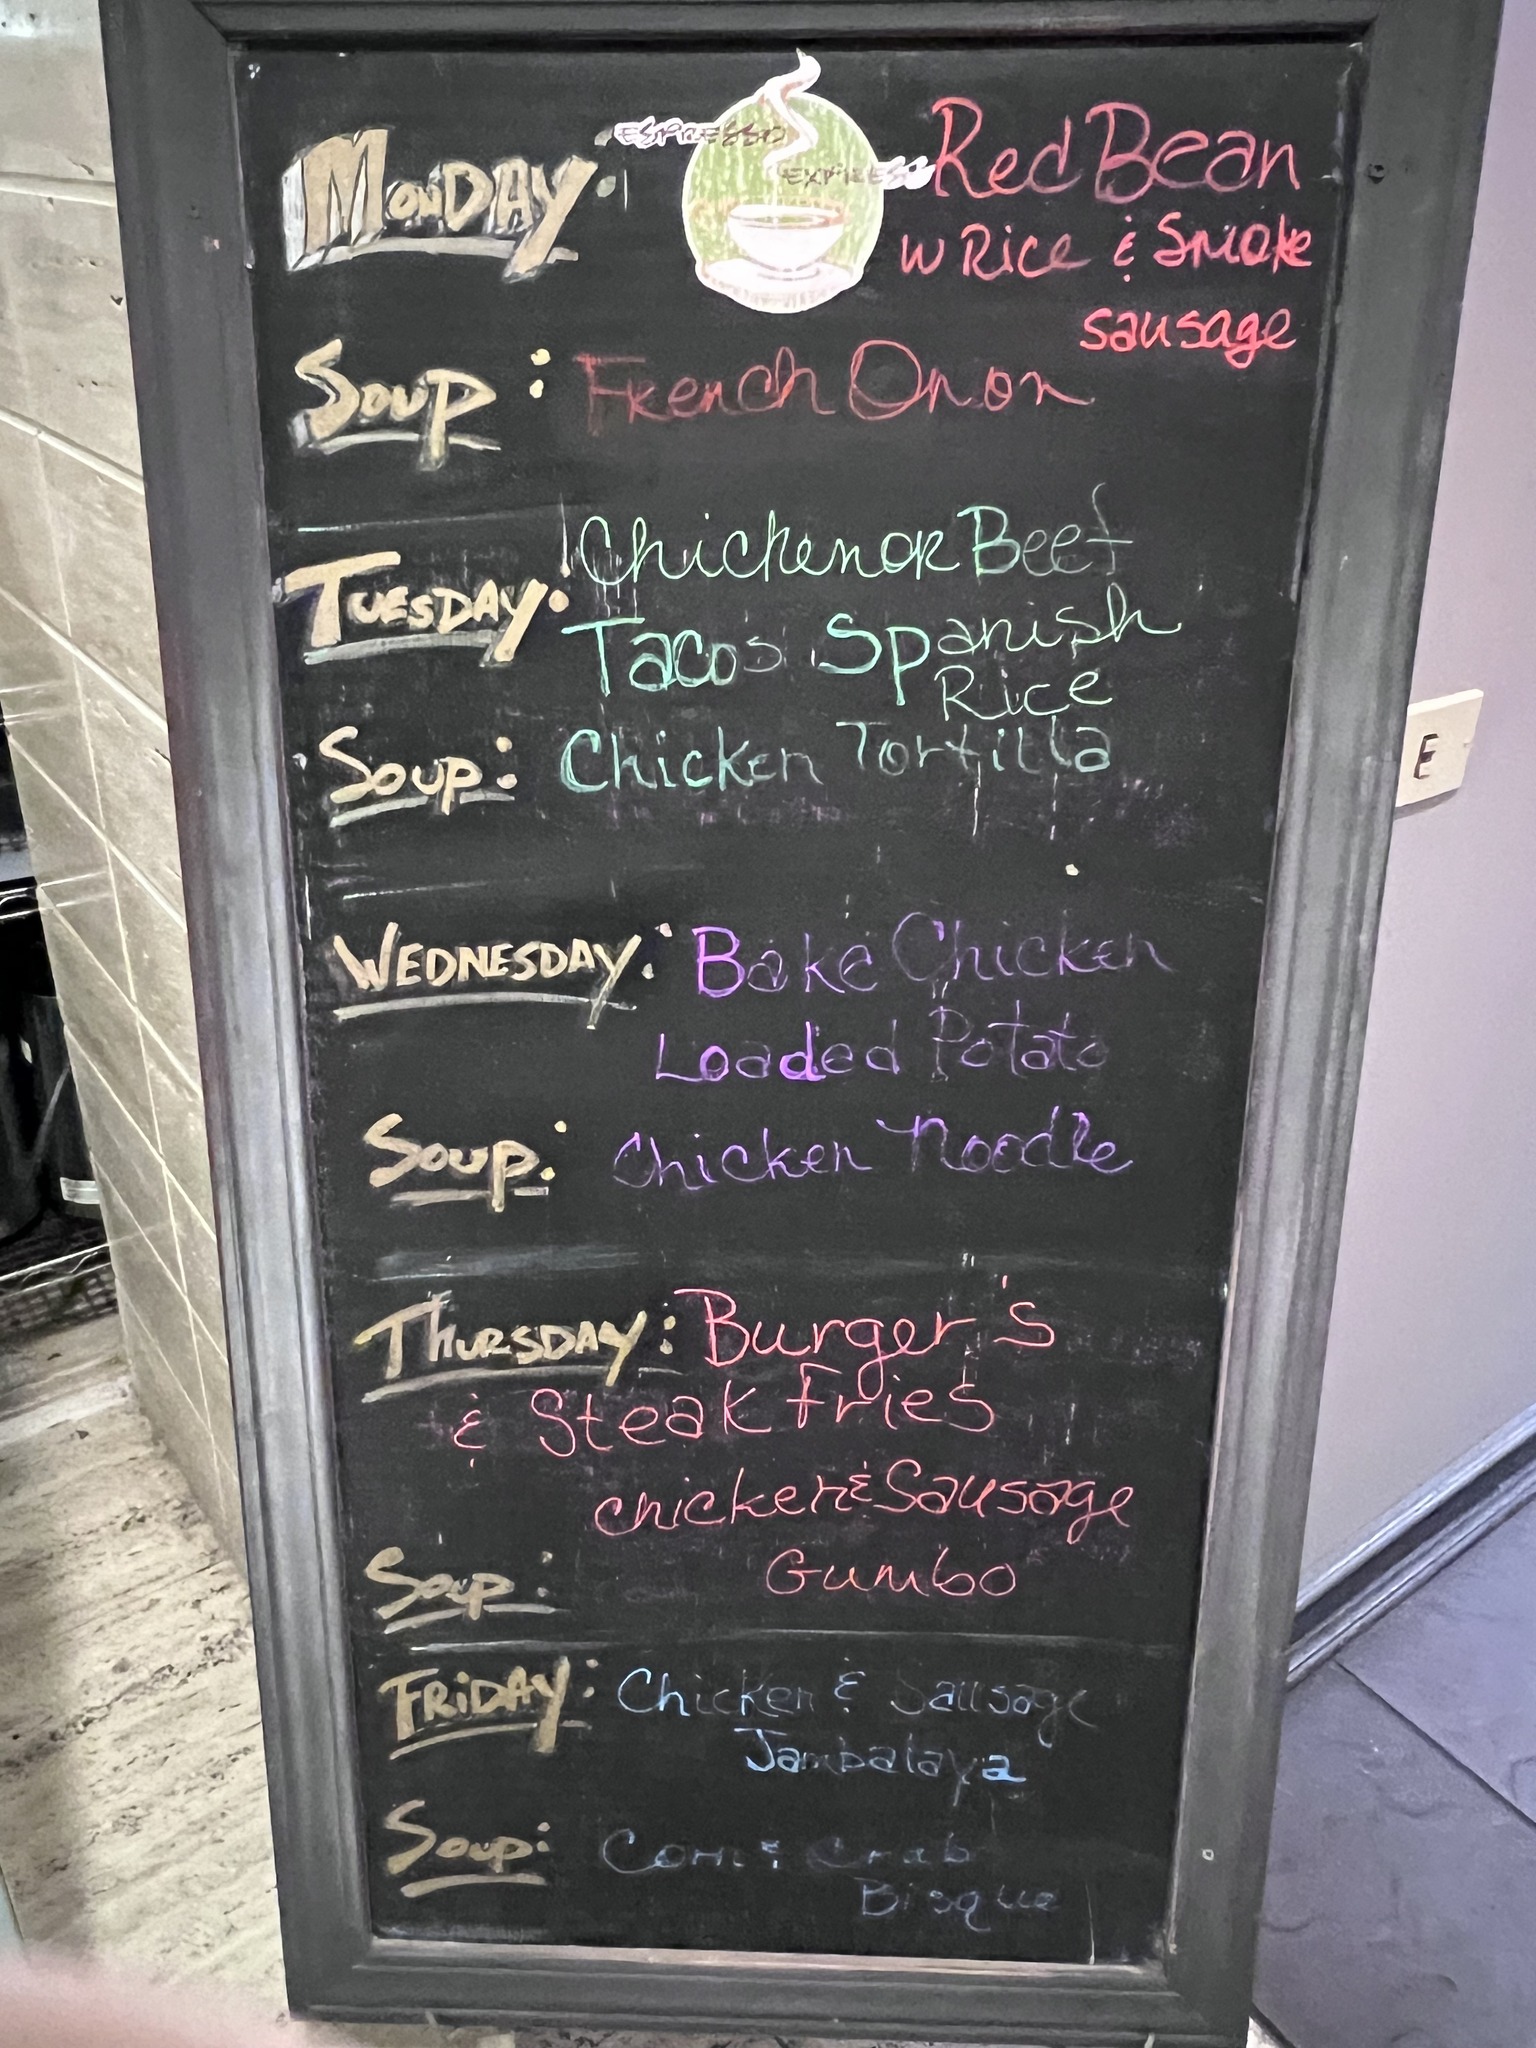 MONDAY:
ESPRESSO
EXPRESS
Red Bean
W Rice & Smoke
sausage
SOUP: French Onon
TUESDAY: Chicken OR Beef
Taco's Spanish
Rice
SOUP: Chicken Tortilla
WEDNESDAY: Bake Chicken
Loaded Potato
SOUP: Chicken Noodle
THURSDAY: Burger's
& Steak fries
chicken & Sausage
Gumbo
SOUP:
FRiDAY: Chicken & Sausage
Jambalaya
SOUP: Corn & Crab
Bisque
E